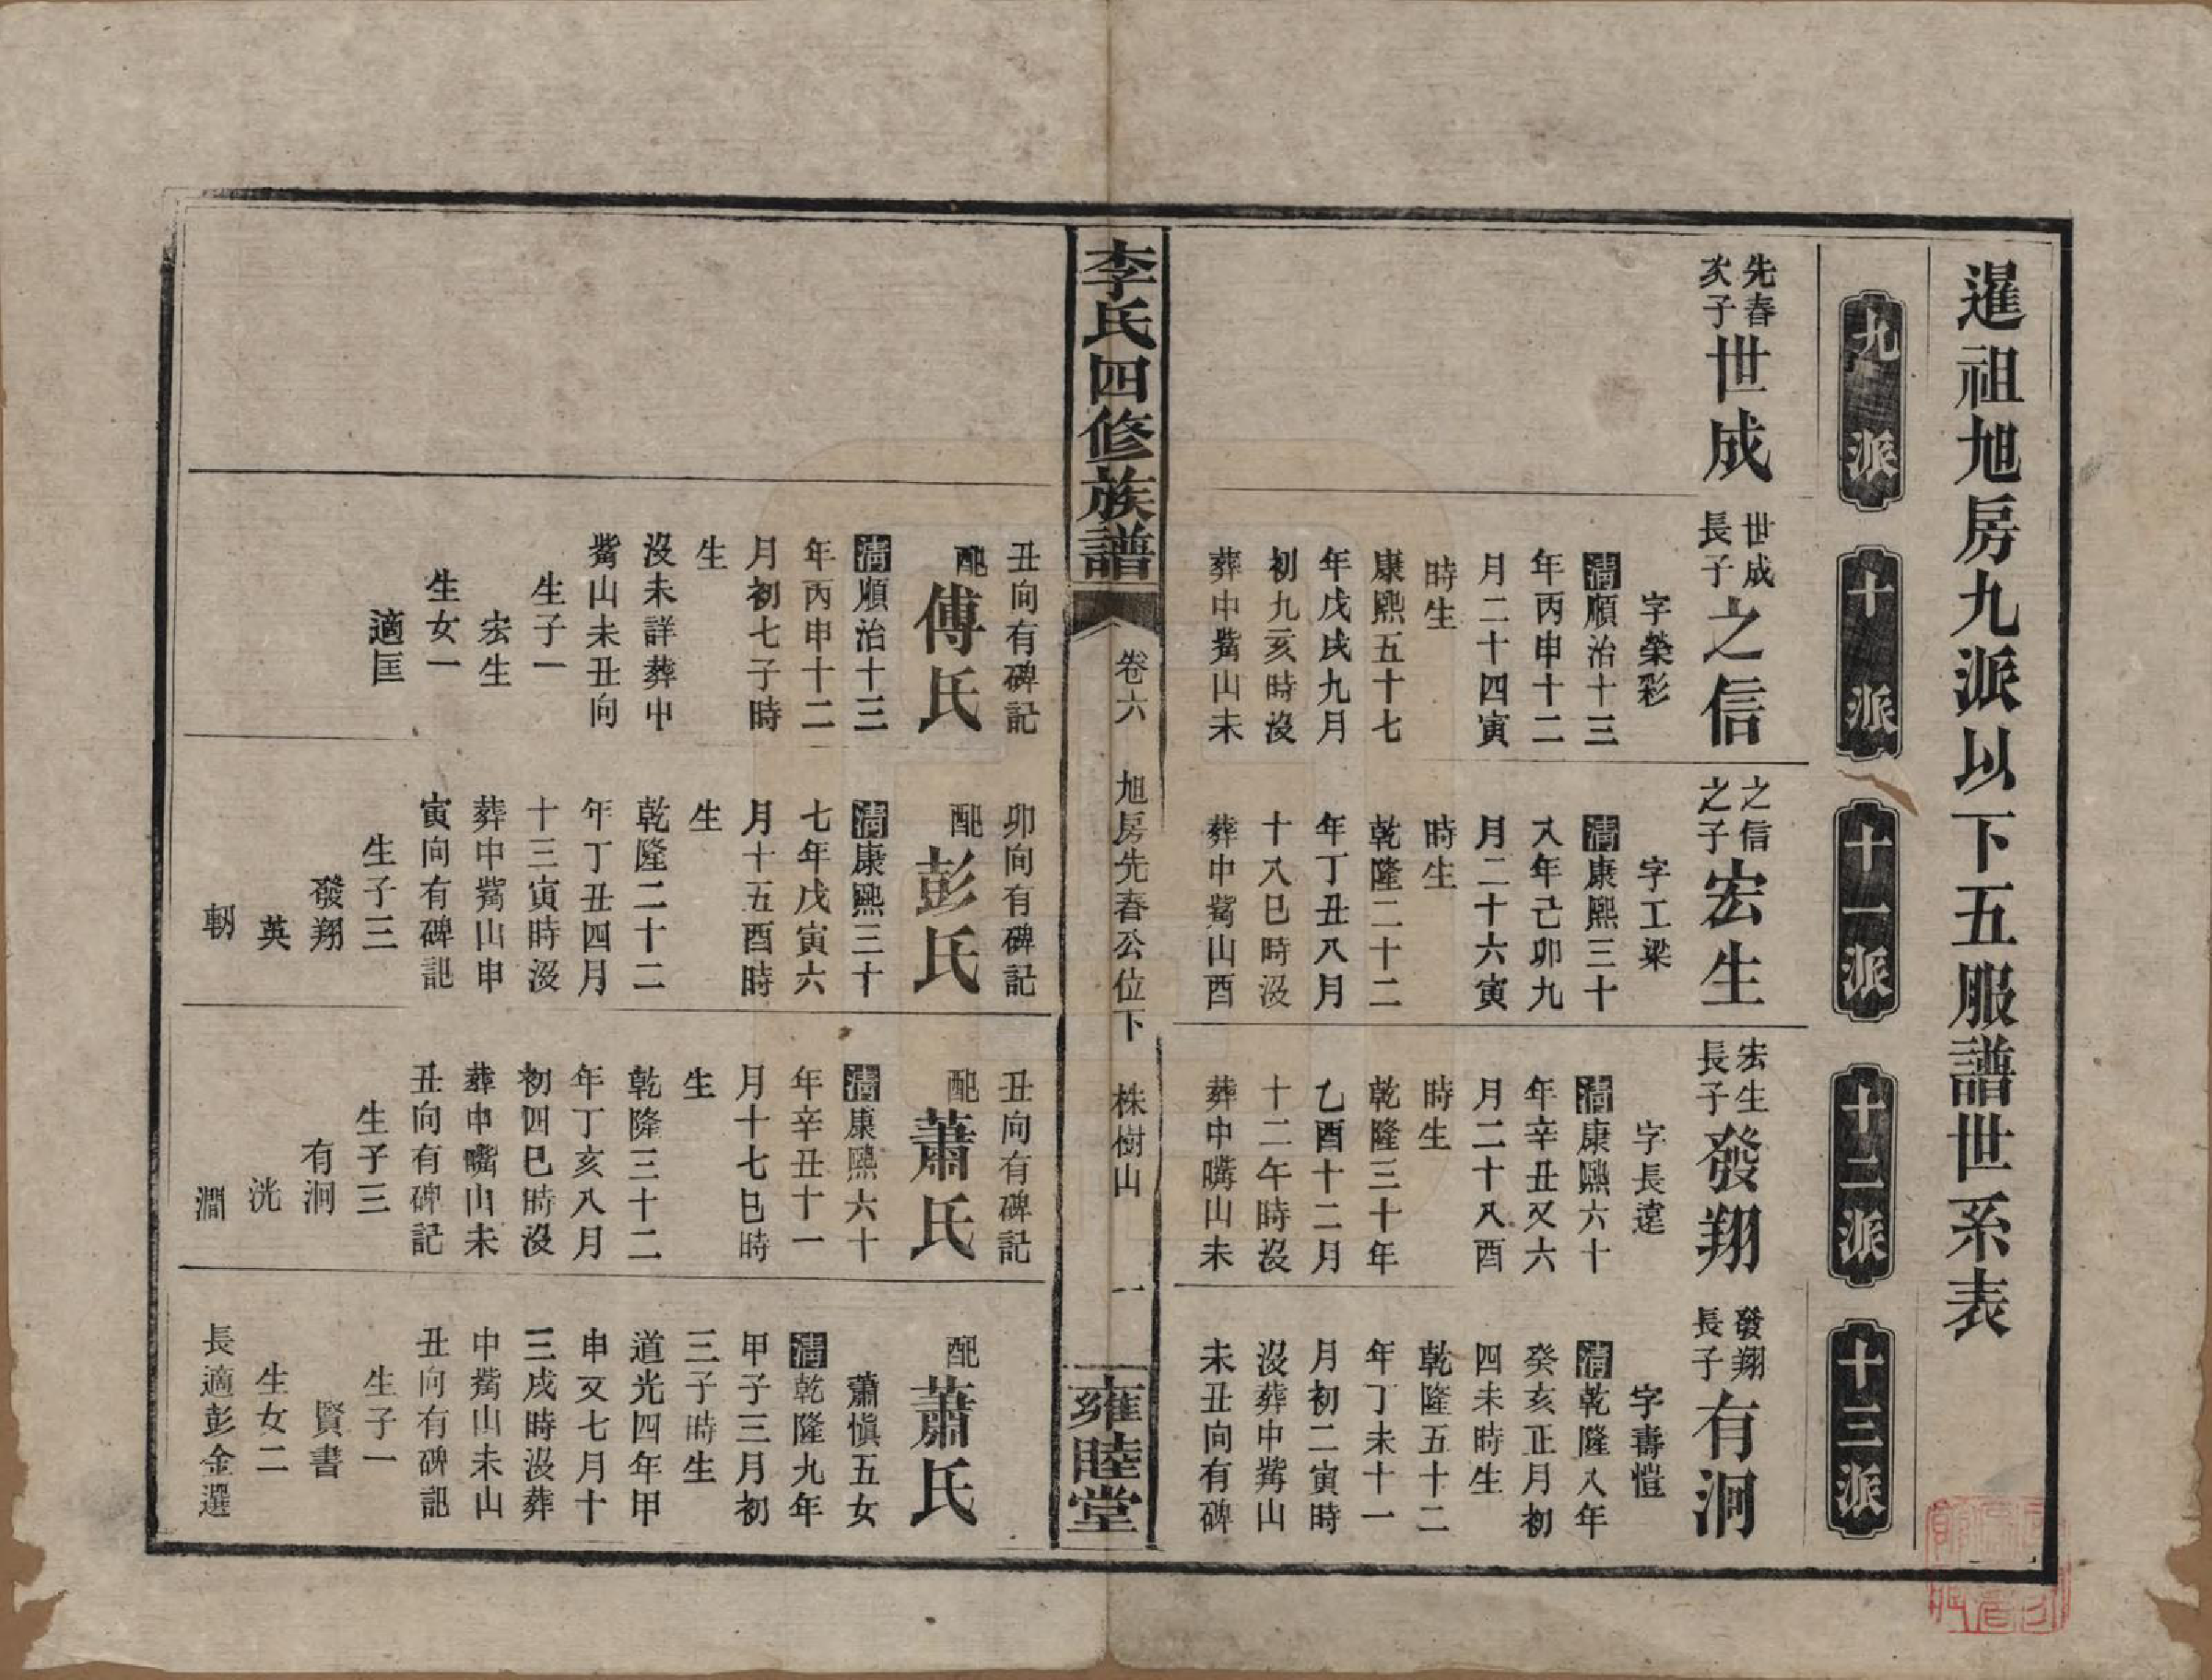 暹祖旭房九派以下五服譜世系表
九派
十派
十一派
十二派
十三派
先春
次子
世成
世成
長子
之信
字榮彩
清順治十三
年丙申十二
月二十四寅
時生
康熙五十七
年戊戌九月
初九亥時沒
葬中觜山未
丑向有碑記
配
傅氏
清順治十三
年丙申十二
月初七子時
生
沒未詳葬中
觜山未丑向
生子一
宏生
生女一
適匡
之信
之子
宏生
字工梁
清康熙三十
八年己卯九
月二十六寅
時生
乾隆二十二
年丁丑八月
十八巳時沒
葬中觜山酉
卯向有碑記
配
彭氏
清康熙三十
七年戊寅六
月十五酉時
生
乾隆二十二
年丁丑四月
十三寅時沒
葬中觜山申
寅向有碑記
生子三
發翔
英
翱
宏生
長子
發翔
字長達
清康熙六十
年辛丑又六
月二十八酉
時生
乾隆三十年
乙酉十二月
十二午時沒
葬中嘴山未
丑向有碑記
配
蕭氏
清康熙六十
年辛丑十一
月十七巳時
生
乾隆三十二
年丁亥八月
初四巳時沒
葬中嘴山未
丑向有碑記
生子三
有泂
洸
澗
發翔
長子
有泂
字壽愷
清乾隆八年
癸亥正月初
四未時生
乾隆五十二
年丁未十一
月初二寅時
沒葬中觜山
未丑向有碑
配
蕭氏
蕭愼五女
清乾隆九年
甲子三月初
三子時生
道光四年甲
申又七月十
三戌時沒葬
中觜山未山
丑向有碑記
生子一
賢書
生女二
長適彭金選
李氏四修族譜
卷六
旭房先春公位下
株樹山
一
雍睦堂